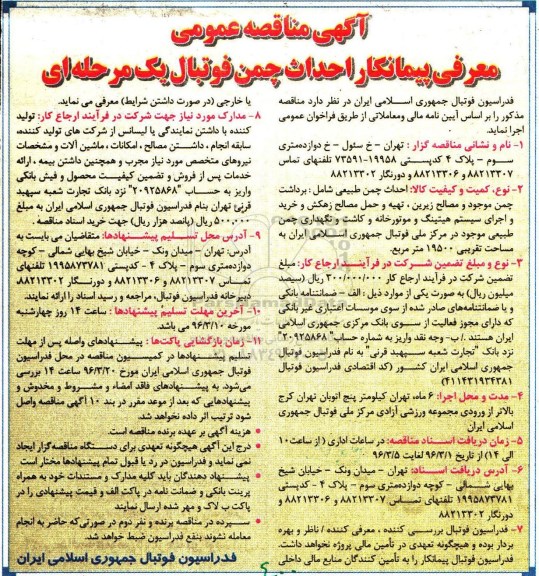 آگهی مناقصه عمومی
معرفی پیمانکار احداث چمن فوتبال یک مرحله‌ای
فدراسیون فوتبال جمهوری اسلامی ایران در نظر دارد مناقصه
مذکور را بر اساس آیین نامه مالی ومعاملاتی از طریق فراخوان عمومی
اجرا نماید.
۱- نام و نشانی مناقصه گزار : تهران - خ سئول - خ دوازدهمتری
سوم - پلاک ۴ کدپستی ۱۹۹۵۸-۷۳۵۹۱ تلفنهای تماس
۸۸۲۱۳۳۰۷ و ۸۸۲۱۳۳۰۶ و دورنگار ۸۸۲۱۳۳۰۲
۲- نوع، کمیت و کیفیت کالا: احداث چمن طبیعی شامل : برداشت
چمن موجود و مصالح زیرین ، تهیه و حمل مصالح زهکش و خرید
و اجرای سیستم هیتینگ و موتورخانه و کاشت و نگهداری چمن
طبیعی موجود در مرکز ملی فوتبال جمهوری اسلامی ایران به
مساحت تقریبی ۱۹۵۰۰ متر مربع.
۳- نوع و مبلغ تضمین شرکت در فرآیند ارجاع کار: مبلغ
تضمین شرکت در فرآیند ارجاع کار ۳۰۰/۰۰۰/۰۰۰ ریال (سیصد
میلیون ریال) به صورت یکی از موارد ذیل : الف - ضمانتنامه بانکی
و یا ضمانتنامه‌های صادر شده از سوی موسسات اعتباری غیر بانکی
که دارای مجوز فعالیت از سوی بانک مرکزی جمهوری اسلامی
ایران هستند . /ب- وجه نقد واریز به شماره حساب" ۲۰۹۲۵۸۶۸"
نزد بانک "تجارت شعبه سپهبد قرنی" به نام فدراسیون فوتبال
جمهوری اسلامی ایران کشور (کد اقتصادی فدراسیون فوتبال
۴۱۱۴۳۱۹۳۴۳۸۱)
۴- مدت و محل اجرا: ۶ ماه، تهران کیلومتر پنج اتوبان تهران کرج
بالاتر از ورودی مجموعه ورزشی آزادی مرکز ملی فوتبال جمهوری
اسلامی ایران
۵- زمان دریافت اسناد مناقصه: در ساعات اداری (از ساعت ۱۰
الی ۱۴) از تاریخ ۹۶/۳/۱ لغایت ۹۶/۳/۵
۶- آدرس دریافت اسناد: تهران - میدان ونک - خیابان شیخ
بهایی شمالی - کوچه دوازده‌متری سوم - پلاک ۴ - کدپستی
۱۹۹۵۸۷۳۷۸۱ تلفنهای تماس ۸۸۲۱۳۳۰۷ و ۸۸۲۱۳۳۰۶ و
دورنگار ۸۸۲۱۳۳۰۲
۷- فدراسیون فوتبال بررسی کننده ، معرفی کننده / ناظر و بهره
بردار بوده و هیچگونه تعهدی در تأمین مالی پروژه نخواهد داشت.
فدراسیون فوتبال پیمانکار را به تأمین کنندگان منابع مالی داخلی
یا خارجی (در صورت داشتن شرایط) معرفی می نماید.
۸- مدارک مورد نیاز جهت شرکت در فرآیند ارجاع کار: تولید
کننده با داشتن نمایندگی یا لیسانس از شرکت های تولید کننده،
سابقه انجام ، داشتن مصالح ، امکانات ، ماشین آلات و مشخصات
نیروهای متخصص مورد نیاز مجرب و همچنین داشتن بیمه ، ارائه
خدمات پس از فروش و تضمین کیفیت محصول و فیش بانکی
واریز به حساب "۲۰۹۲۵۸۶۸" نزد بانک تجارت شعبه سپهبد
قرنی تهران بنام فدراسیون فوتبال جمهوری اسلامی ایران به مبلغ
۵۰۰.۰۰۰ ریال (پانصد هزار ریال) جهت خرید اسناد مناقصه .
۹- آدرس محل تسلیم پیشنهادها: متقاضیان می بایست به
آدرس: تهران - میدان ونک - خیابان شیخ بهایی شمالی - کوچه
دوازده‌متری سوم - پلاک ۴ - کدپستی ۱۹۹۵۸۷۳۷۸۱ تلفنهای
تماس ۸۸۲۱۳۳۰۷ و ۸۸۲۱۳۳۰۶ و دورنگار ۸۸۲۱۳۳۰۲،
دبیرخانه فدراسیون فوتبال، مراجعه و رسید اسناد را ارائه نمایند.
۱۰- آخرین مهلت تسلیم پیشنهادها : ساعت ۱۴ روز چهارشنبه
مورخه ۹۶/۳/۱۰ می باشد.
۱۱- زمان بازگشایی پاکت‌ها : پیشنهادهای واصله پس از مهلت
تسلیم پیشنهادها در کمیسیون مناقصه در محل فدراسیون
فوتبال جمهوری اسلامی ایران مورخ ۹۶/۳/۲۰ ساعت ۱۴ بررسی
می‌شود. به پیشنهادهای فاقد امضاء و مشروط و مخدوش و
پیشنهادهایی که بعد از موعد مقرر در بند ۱۰ آگهی مناقصه واصل
شود ترتیب اثر داده نخواهد شد.
• هزینه آگهی بر عهده برنده مناقصه است.
• درج این آگهی هیچگونه تعهدی برای دستگاه مناقصه‌گزار ایجاد
نمی نماید و فدراسیون در رد یا قبول تمام پیشنهادها مختار است
• پیشنهاد دهندگان باید کلیه مدارک و مستندات خود به همراه
پرینت بانکی و ضمانت نامه در پاکت الف و قیمت پیشنهادی را در
پاکت ب لاک و مهر شده ارسال نمایند
• سپرده در مناقصه برنده و نفر دوم در صورتی‌که حاضر به انجام
معامله نشوند بنفع فدراسیون ضبط خواهد شد.
فدراسیون فوتبال جمهوری اسلامی ایران